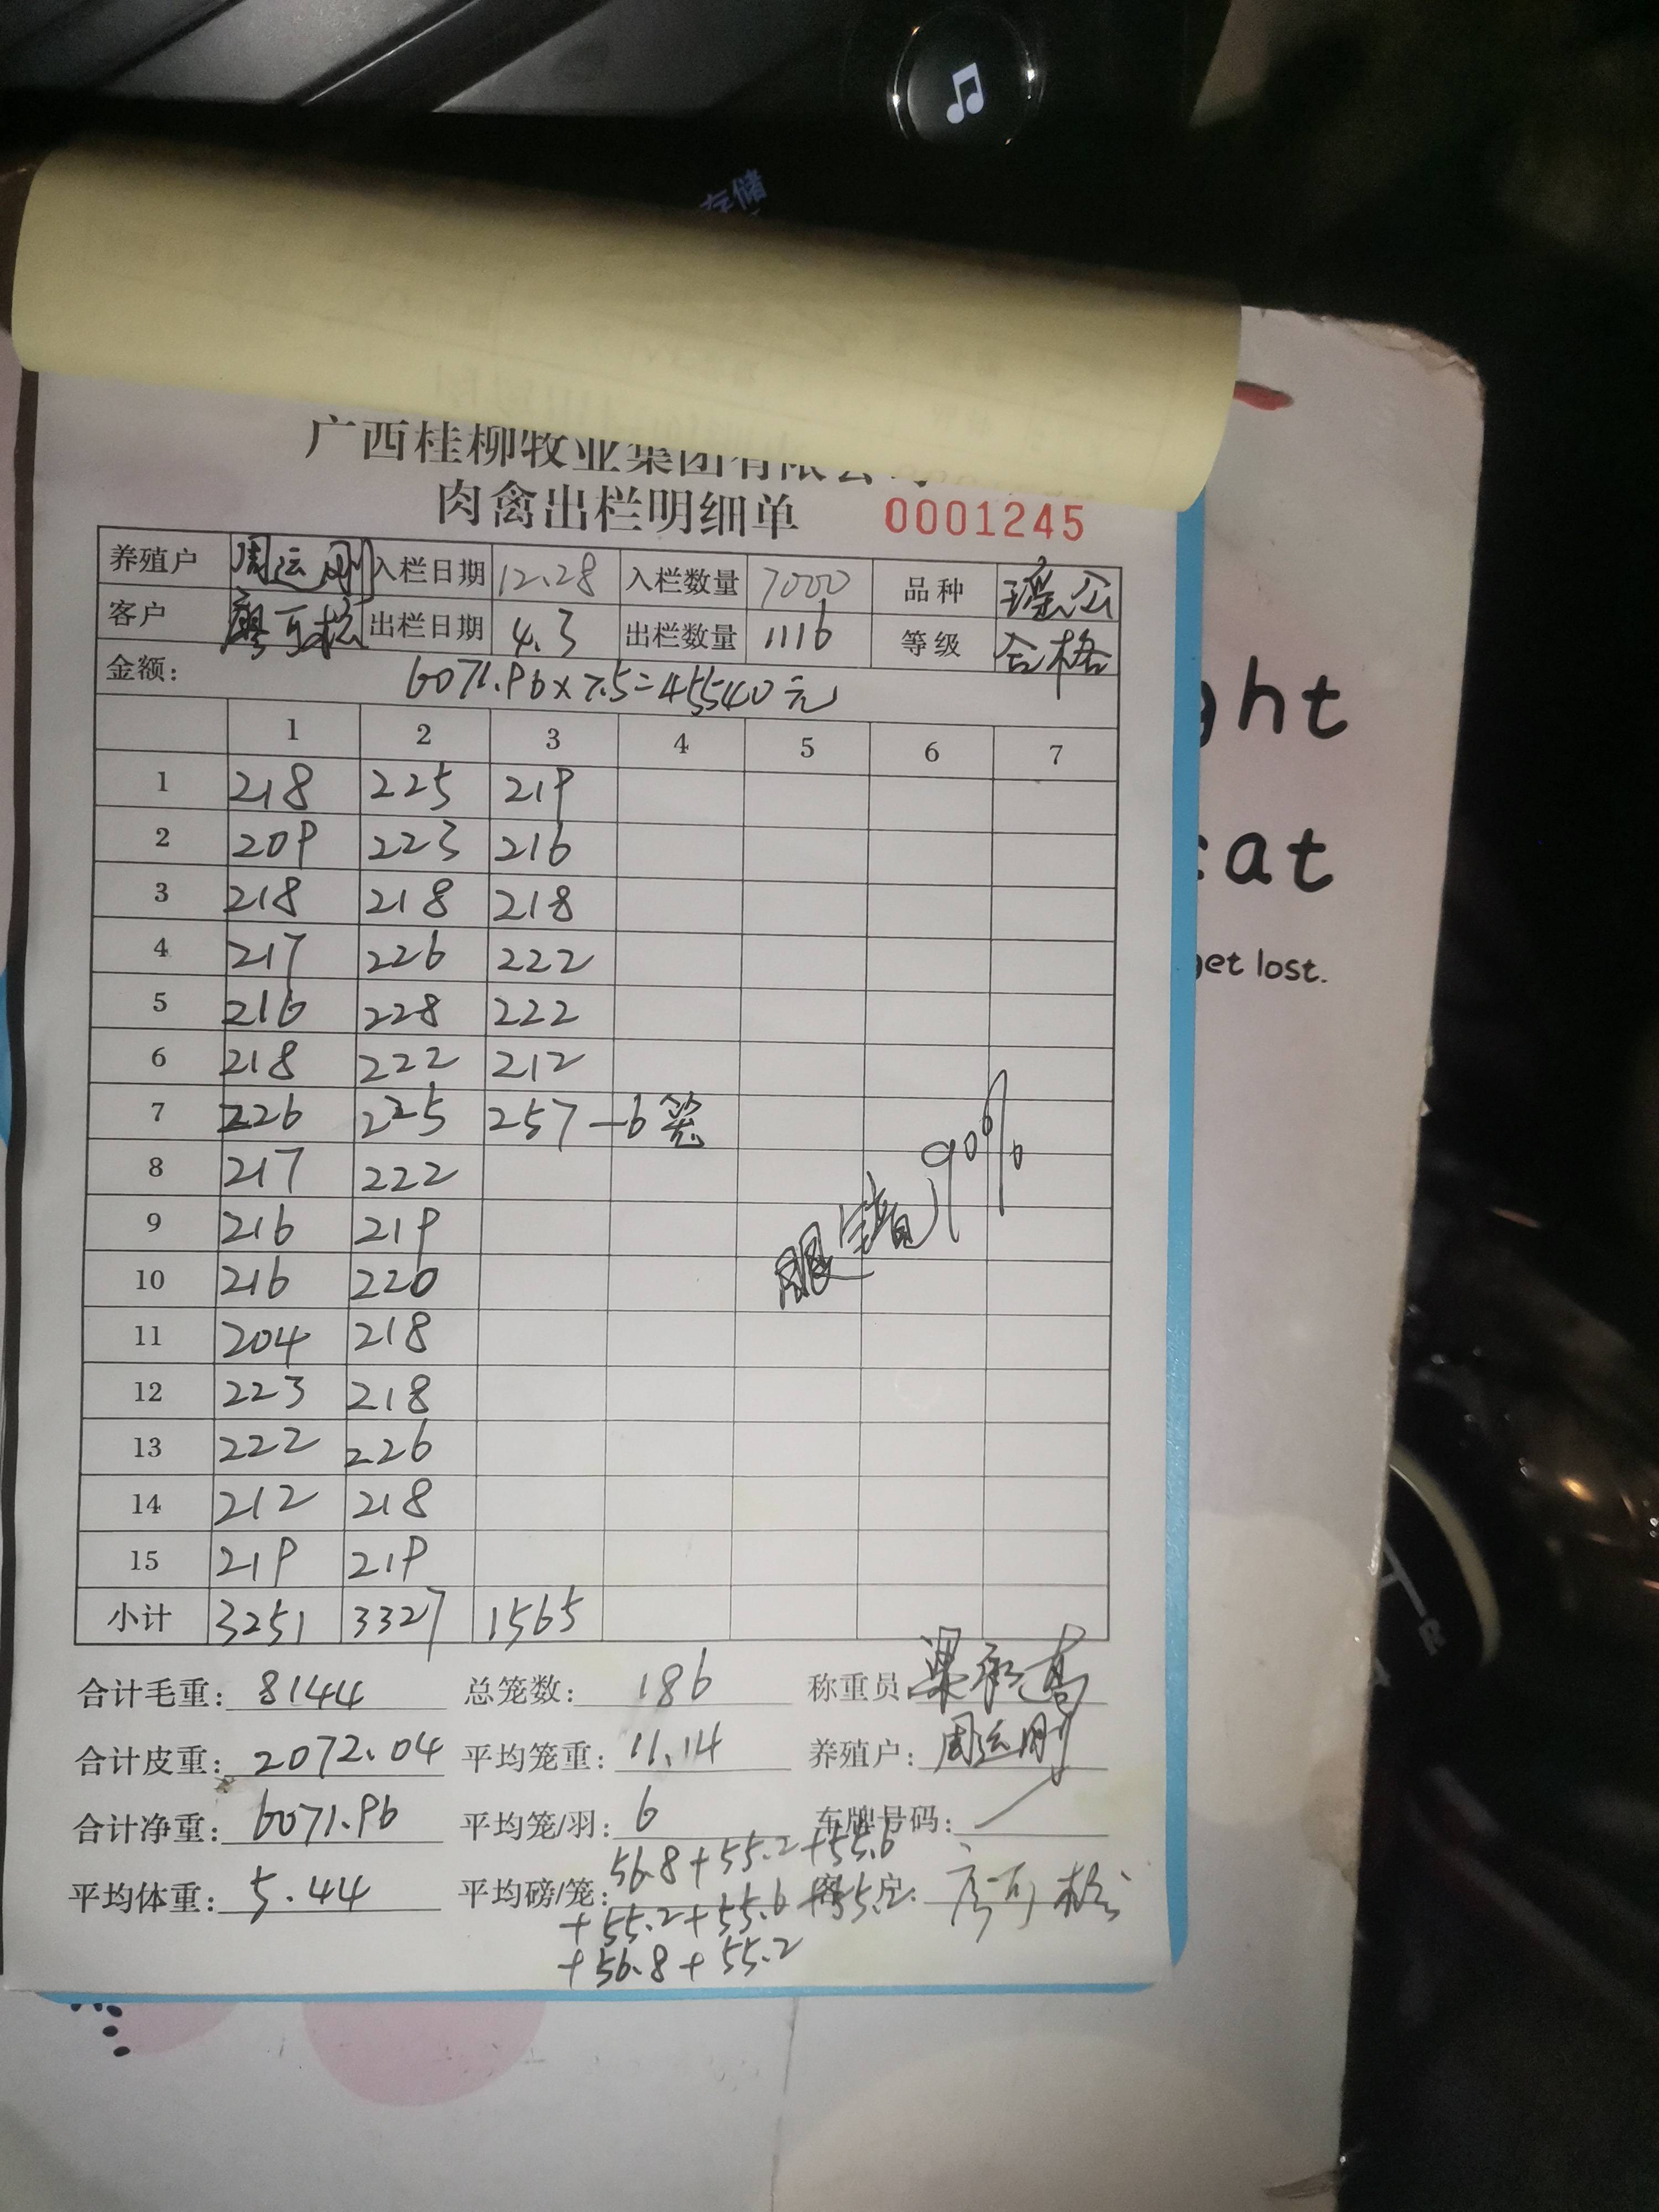 存储
广西桂柳牧业集团有限公
肉禽出栏明细单 0001245
养殖户 周运刚 入栏日期 12.28 入栏数量 7000 品种 瑶公
客户 廖可松 出栏日期 4.3 出栏数量 1116 等级 合格
金额: 6071.96×7.5=45540元
1 2 3 4 5 6 7
1 218 225 219
2 209 223 216
3 218 218 218
4 217 226 222
5 216 228 222
6 218 222 212
7 226 225 257 -6笼
8 217 222
9 216 219
10 216 220
11 204 218
12 223 218
13 222 226
14 212 218
15 219 219
90%
小计 3251 3327 1565
合计毛重: 8144 总笼数: 186 称重员
合计皮重: 2072.04 平均笼重: 11.14 养殖户: 周运刚
合计净重: 6071.96 平均笼/羽: 6 车牌号码:
平均体重: 5.44 平均磅/笼: 56.8+55.2+55.6 客户: 廖可松
+55.2+55.6+55.2
+56.8+55.2
ght
cat
get lost.